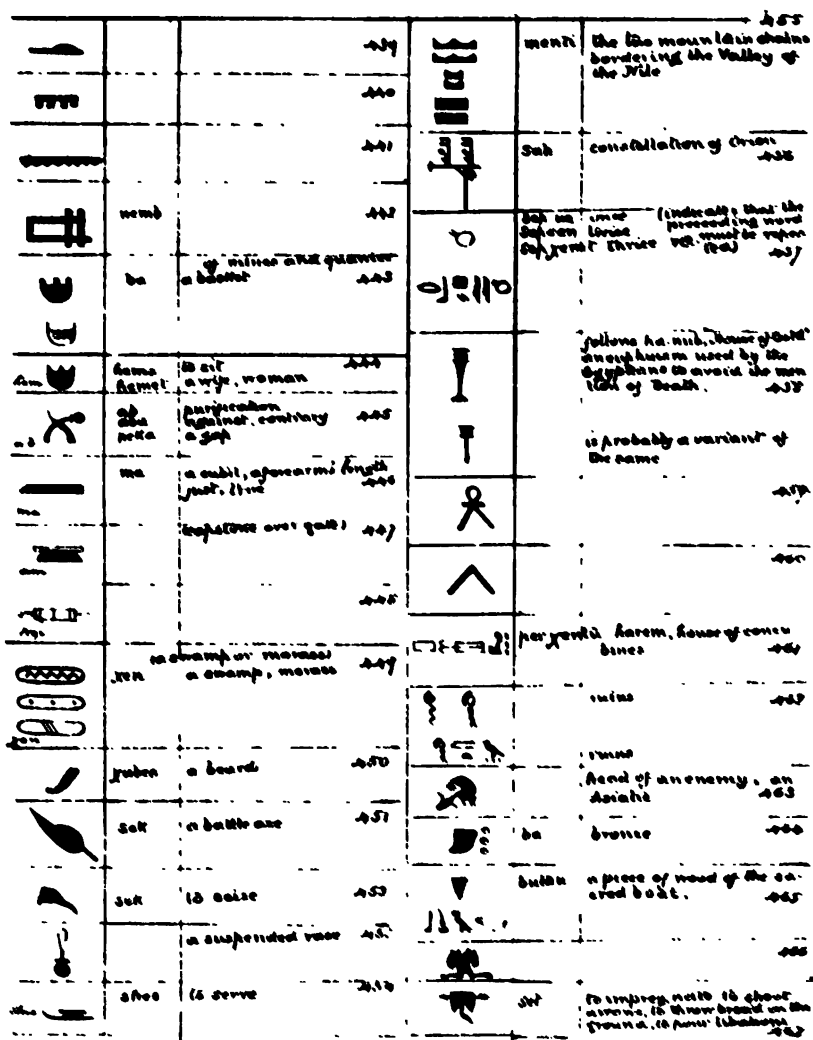 439
440
441
nemb 442
of mines and quarries
ba a basket 443
hems to sit 444
hem hemet a wife, woman
ab purification
abu against, contrary 445
ab petta a gap
ma a cubit, a forearm's length
just, true 446
ma
(capstone over gate) 447
am
448
(a swamp or morass)
xen a swamp, morass 449
a beard 450
sek a battle axe 451
sek to seize 452
a suspended vase
to serve 454
455
menti the two mountain chains
bordering the Valley of
the Nile
Sah constellation of Orion
456
(indicates that the
twice preceding word
thrice must be repea
ted) 457
follows ha-nub, house of Gold
an euphuism used by the
Egyptians to avoid the men
tion of Death. 458
is probably a variant of
the same
459
460
harem, house of concu
bines 461
ruins 462
ruins
head of an enemy, an
Asiatic 463
ba bronze 464
a piece of wood of the sa-
cred boat. 465
466
set to impregnate, to shoot
arrows, to throw bread on the
ground, to pour libations
467